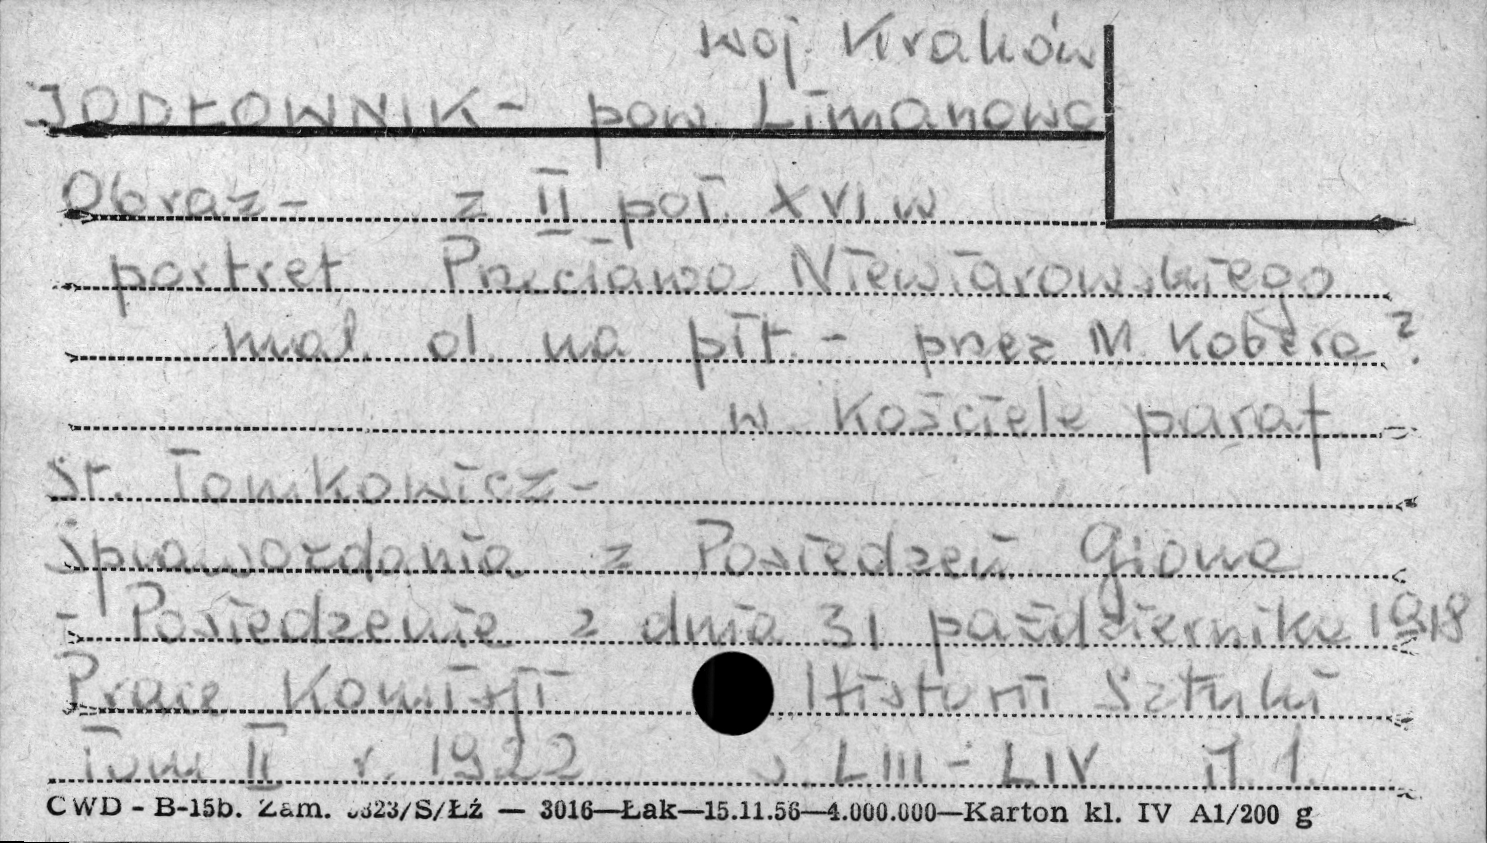 woj. Kraków
JODŁOWNIK - pow. Limanowa
Obraz - z II poł. XVI w
portret Przecława Niewiarowskiego
mal. ol. na płt. - przez M. Kobera ?
w Kościele paraf. -
St. Tomkowicz -
Sprawozdania z Posiedzeń Grona
- Posiedzenie z dnia 31 października 1918
Prace Komisji Historii Sztuki
Tom II r. 1922 s. LIII - LIV il. 1.
CWD - B-15b. Zam. 323/S/Łź — 3016—Łak—15.11.56—4.000.000—Karton kl. IV A1/200 g